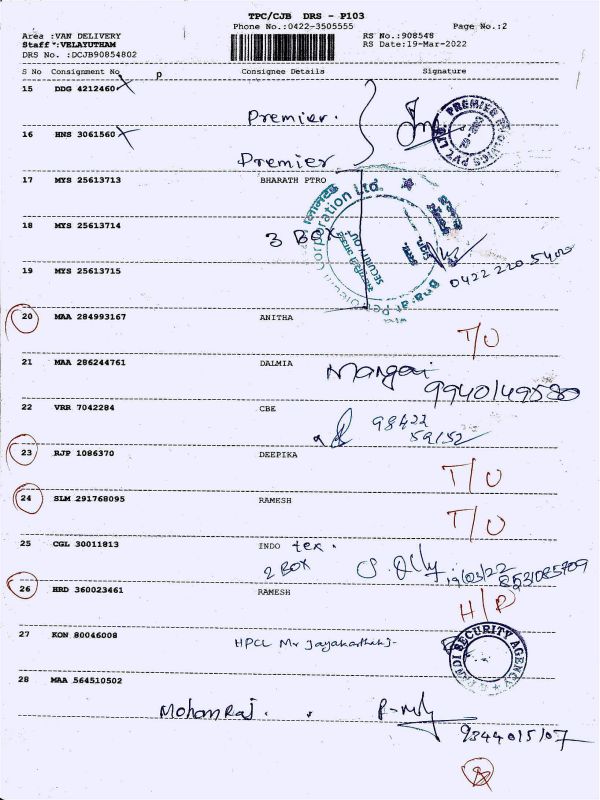 TPC/CJB DRS - P103
Phone No.:0422-3505555 Page No.:2
Area :VAN DELIVERY RS No.:908548
Staff :VELAYUTHAM RS Date:19-Mar-2022
DRS No. :DCJB90854802
S No Consignment No p Consignee Details Signature
15 DDG 4212460
Premier.
16 HNS 3061560
Premier
17 MYS 25613713 BHARATH PTRO
18 MYS 25613714 3 BOX
0422 220 5400
19 MYS 25613715
20 MAA 284993167 ANITHA
T/O
21 MAA 286244761 DALMIA
Mangai
9940149580
22 VRR 7042284 CBE
98422
59152
23 RJP 1086370 DEEPIKA
T/O
24 SLM 291768095 RAMESH
T/O
25 CGL 30011813 INDO tex.
2 BOX 19/03/22
26 HRD 360023461 RAMESH
H/P
27 KON 80046008
HPCL Mr Jayakarthak J-
SECURITY AGENCY
28 MAA 564510502
MohanRaj.
9344015107